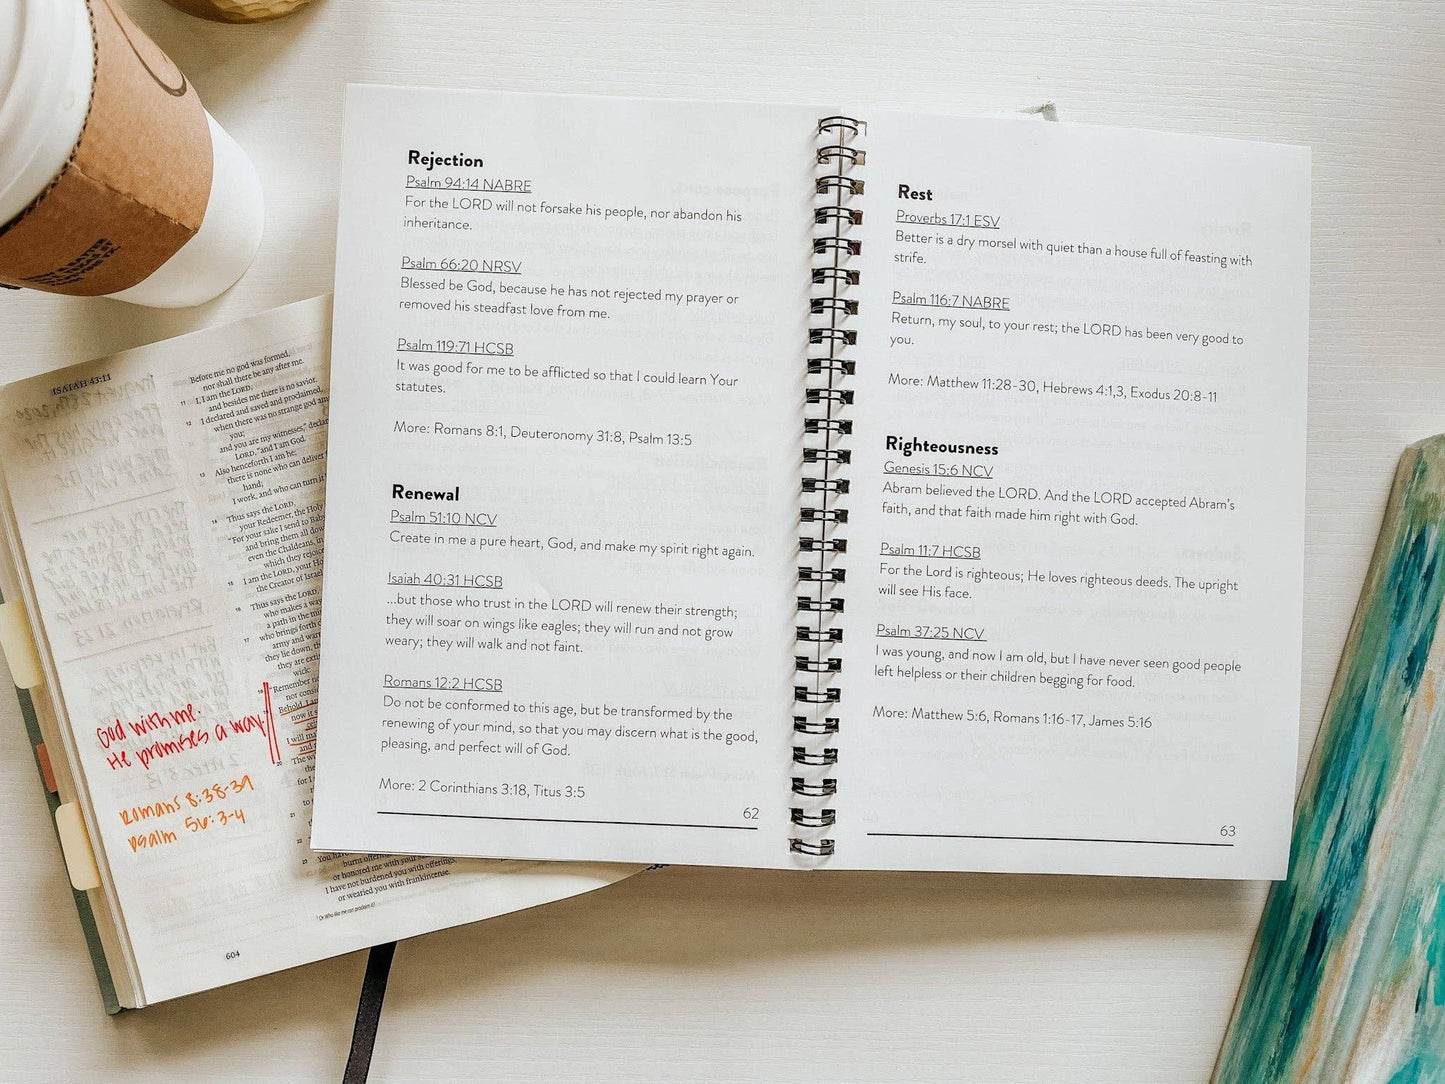 Rejection
Psalm 94:14 NABRE
For the LORD will not forsake his people, nor abandon his
inheritance.
Psalm 66:20 NRSV
Blessed be God, because he has not rejected my prayer or
removed his steadfast love from me.
Psalm 119:71 HCSB
It was good for me to be afflicted so that I could learn Your
statutes.
More: Romans 8:1, Deuteronomy 31:8, Psalm 13:5
Renewal
Psalm 51:10 NCV
Create in me a pure heart, God, and make my spirit right again.
Isaiah 40:31 HCSB
...but those who trust in the LORD will renew their strength;
they will soar on wings like eagles; they will run and not grow
weary; they will walk and not faint.
Romans 12:2 HCSB
Do not be conformed to this age, but be transformed by the
renewing of your mind, so that you may discern what is the good,
pleasing, and perfect will of God.
More: 2 Corinthians 3:18, Titus 3:5
62
Rest
Proverbs 17:1 ESV
Better is a dry morsel with quiet than a house full of feasting with
strife.
Psalm 116:7 NABRE
Return, my soul, to your rest; the LORD has been very good to
you.
More: Matthew 11:28-30, Hebrews 4:1,3, Exodus 20:8-11
Righteousness
Genesis 15:6 NCV
Abram believed the LORD. And the LORD accepted Abram's
faith, and that faith made him right with God.
Psalm 11:7 HCSB
For the Lord is righteous; He loves righteous deeds. The upright
will see His face.
Psalm 37:25 NCV
I was young, and now I am old, but I have never seen good people
left helpless or their children begging for food.
More: Matthew 5:6, Romans 1:16-17, James 5:16
63
ISAIAH 43:11
Before me no god was formed,
nor shall there be any after me.
11 I, I am the LORD,
and besides me there is no savior.
12 I declared and saved and proclaimed,
when there was no strange god
you;
and you are my witnesses,"
LORD, "and I am God.
13 Also henceforth I am he;
there is none who can deliver
hand;
I work, and who can turn it
14 Thus says the LORD,
your Redeemer, the Holy
"For your sake I send to
and bring them all down
even the Chaldeans, in
which they rejoice
15 I am the LORD, your
the Creator of Israel
16 Thus says the LORD,
who makes a way
a path in the
17 who brings forth
army and
they lie down,
they are
wick:
18 "Remember
nor
19 Behold, I am
now it
I will
and
20 The
for I
to
God with me.
He promises a way.
Romans 8:38-39
Psalm 56:3-4
You have
burnt offerings
or honored me with your
I have not burdened you with offerings,
or wearied you with frankincense.
604